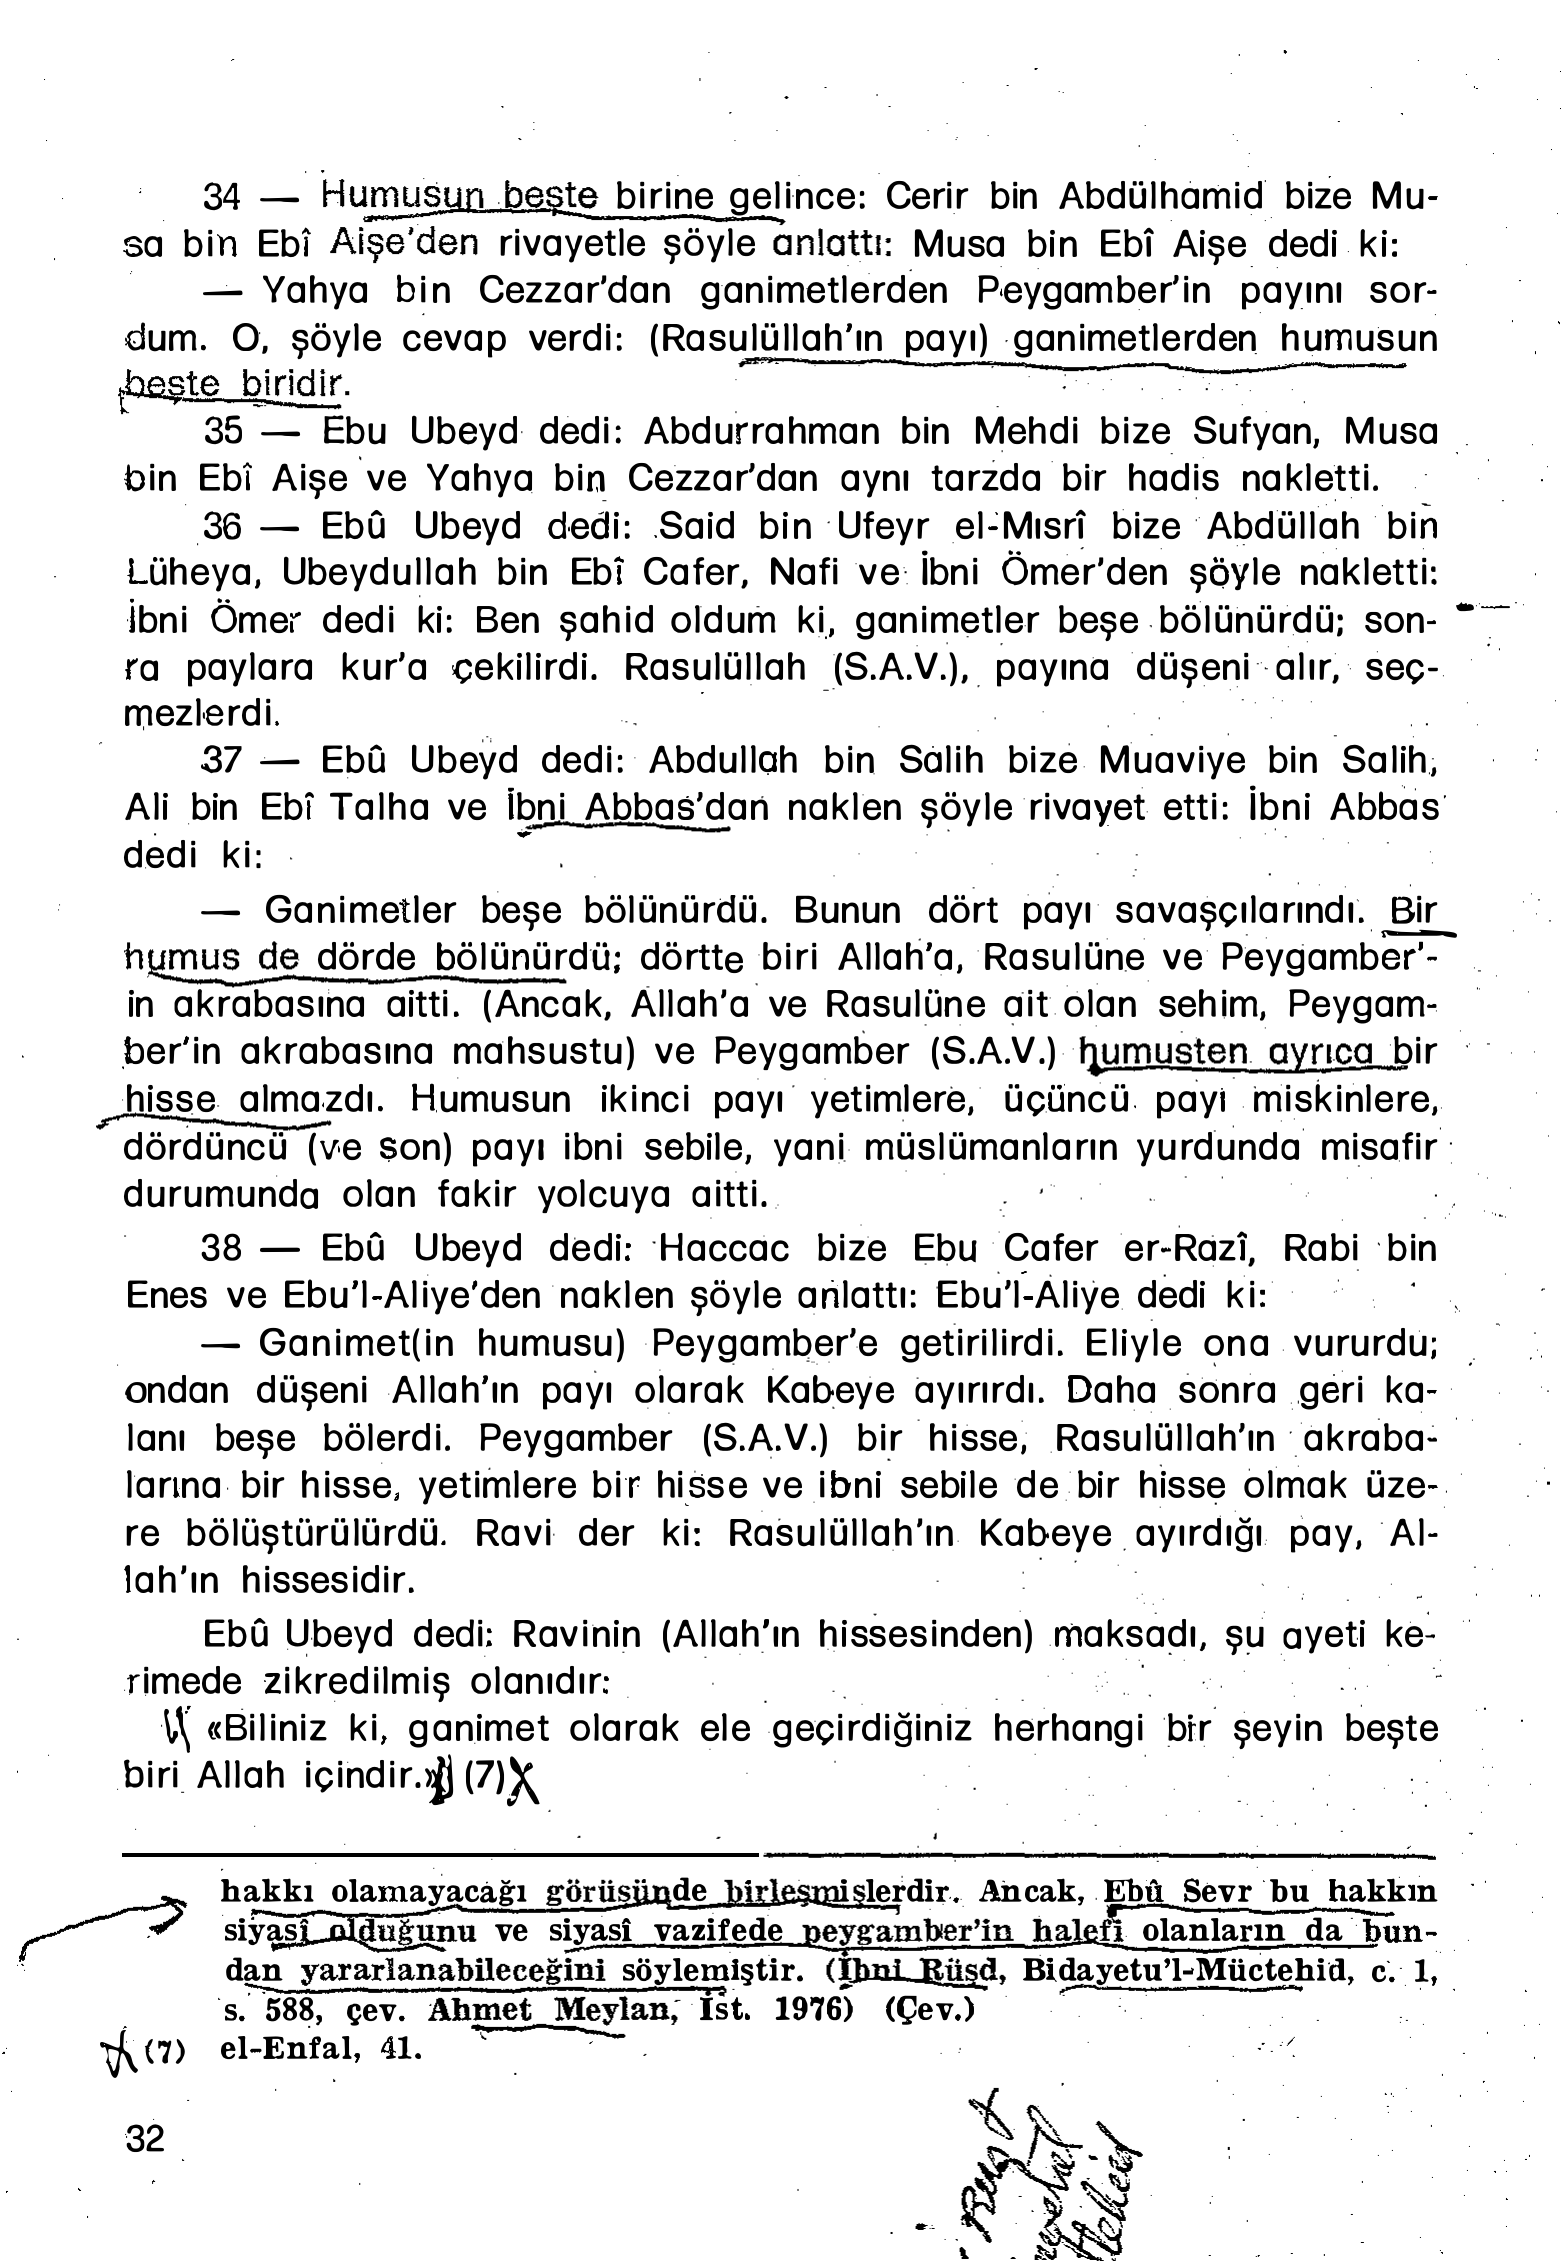 34 — Humusun beşte birine gelince: Cerir bin Abdülhamid bize Mu-
sa bin Ebî Aişe'den rivayetle şöyle anlattı: Musa bin Ebî Aişe dedi ki:
— Yahya bin Cezzar'dan ganimetlerden Peygamber'in payını sor-
dum. O, şöyle cevap verdi: (Rasulüllah'ın payı) ganimetlerden humusun
beşte biridir.
35 — Ebu Ubeyd dedi: Abdurrahman bin Mehdi bize Sufyan, Musa
bin Ebî Aişe ve Yahya bin Cezzar'dan aynı tarzda bir hadis nakletti.
36 — Ebû Ubeyd dedi: Said bin Ufeyr el-Mısrî bize Abdüllah bin
Lüheya, Ubeydullah bin Ebî Cafer, Nafi ve İbni Ömer'den şöyle nakletti:
İbni Ömer dedi ki: Ben şahid oldum ki, ganimetler beşe bölünürdü; son-
ra paylara kur'a çekilirdi. Rasulüllah (S.A.V.), payına düşeni alır, seç-
mezlerdi.
37 — Ebû Ubeyd dedi: Abdullah bin Salih bize Muaviye bin Salih,
Ali bin Ebî Talha ve İbni Abbas'dan naklen şöyle rivayet etti: İbni Abbas
dedi ki:
— Ganimetler beşe bölünürdü. Bunun dört payı savaşçılarındı. Bir
humus de dörde bölünürdü; dörtte biri Allah'a, Rasulüne ve Peygamber'-
in akrabasına aitti. (Ancak, Allah'a ve Rasulüne ait olan sehim, Peygam-
ber'in akrabasına mahsustu) ve Peygamber (S.A.V.) humusten ayrıca bir
hisse almazdı. Humusun ikinci payı yetimlere, üçüncü payı miskinlere,
dördüncü (ve son) payı ibni sebile, yani müslümanların yurdunda misafir
durumunda olan fakir yolcuya aitti.
38 — Ebû Ubeyd dedi: Haccac bize Ebu Cafer er-Razî, Rabi bin
Enes ve Ebu'l-Aliye'den naklen şöyle anlattı: Ebu'l-Aliye dedi ki:
— Ganimet(in humusu) Peygamber'e getirilirdi. Eliyle ona vururdu;
ondan düşeni Allah'ın payı olarak Kabeye ayırırdı. Daha sonra geri ka-
lanı beşe bölerdi. Peygamber (S.A.V.) bir hisse, Rasulüllah'ın akraba-
larına bir hisse, yetimlere bir hisse ve ibni sebile de bir hisse olmak üze-
re bölüştürülürdü. Ravi der ki: Rasulüllah'ın Kabeye ayırdığı pay, Al-
lah'ın hissesidir.
Ebû Ubeyd dedi: Ravinin (Allah'ın hissesinden) maksadı, şu ayeti ke-
rimede zikredilmiş olanıdır:
«Biliniz ki, ganimet olarak ele geçirdiğiniz herhangi bir şeyin beşte
biri Allah içindir.» (7)
hakkı olamayacağı görüşünde birleşmişlerdir. Ancak, Ebû Sevr bu hakkın
siyasî olduğunu ve siyasî vazifede peygamber'in halefi olanların da bun-
dan yararlanabileceğini söylemiştir. (İbni Rüşd, Bidayetu'l-Müctehid, c. 1,
s. 588, çev. Ahmet Meylan, İst. 1976) (Çev.)
(7) el-Enfal, 41.
32